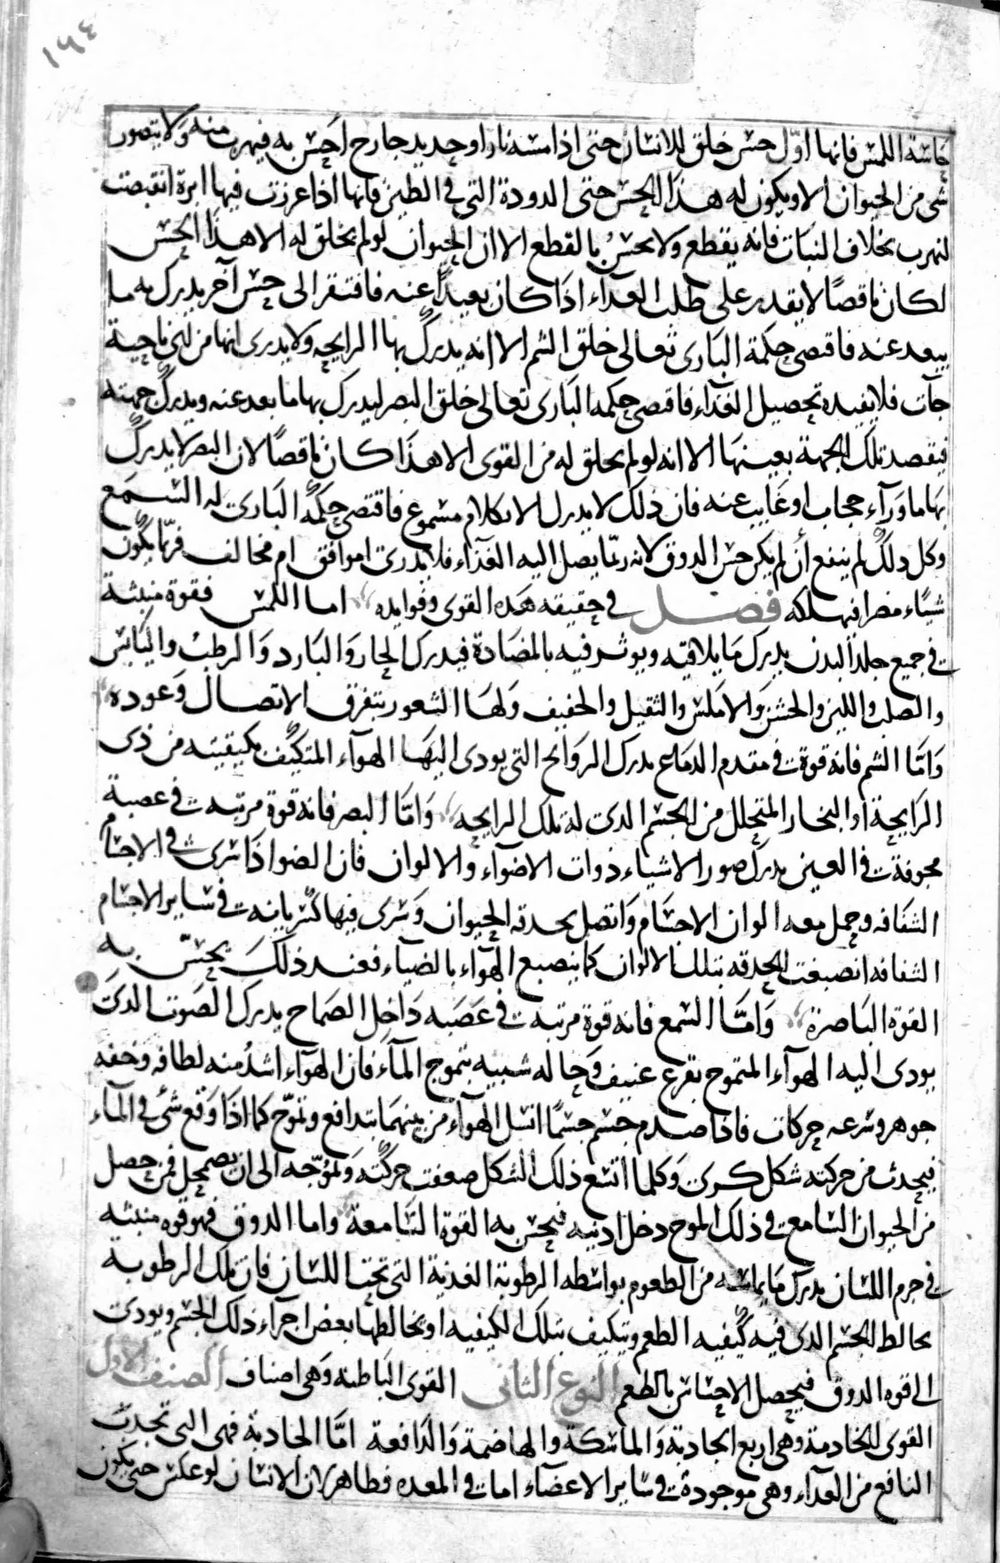 ١٦٤
حاسة اللمس فانها اول حس خلق للانسان حتى اذا مسته نار او حديد جارح احس به فيهرب منه ولا يتصور
شى من الحيوان الا ويكون له هذا الحس حتى الدودة التى فى الطين فانها اذا غرزت فيها ابرة انقبضت
لتهرب بخلاف النبات فانه يقطع ولا يحس بالقطع الا ان الحيوان لو لم يخلق له الا هذا الحس
لكان ناقصا لا يقدر على طلب الغذاء اذا كان بعيدا عنه فافتقر الى حس آخر يدرك به ما
يبعد عنه فاقتضى حكمة البارى تعالى خلق الشم الا انه يدرك بها الرايحه ولا يدرى انها من اى ناحية
جآت فلا يفيده تحصيل الغذاء فاقتضى حكمه البارى تعالى خلق البصر ليدرك بها ما بعد عنه ويدرك جهته
فيقصد تلك الجهة بعينها الا انه لو لم يخلق له من القوى الا هذا كان ناقصا لان البصر لا يدرك
بها ما ورآء حجاب او غايب عنه فان ذلك لا يدرك الا بكلام مسموع فاقتضى حكمة البارى له السمع
وكل ذلك لم ينفع ان لم يكن حس الذوق لانه ربما يصل اليه الغذآء فلا يدرى اموافق ام مخالف فربما يكون
شيئا مضرا فيهلكه فصل فى حقيقه هذه القوى وفوايده اما اللمس فقوة منبثة
فى جميع جلد البدن يدرك ما يلاقيه ويوثر فيه بالمضادة فيدرك الحار والبارد والرطب واليابس
والصلب واللين والخشن والاملس والثقيل والخفيف ولها الشعور بتفرق الاتصال وعوده
واما الشم فانه قوة فى مقدم الدماغ يدرك الروايح التى يودى اليها الهوآء المتكيف بكيفيته من ذى
الرايحة او البخار المتحلل من الجسم الذى له تلك الرايحه واما البصر فانه قوة مرتبه فى عصبة
مجوفة فى العين يدرك صور الاشياء ذوات الاضوآء والالوان فان الضوا اذا سرى فى الاجسام
الشفافه وحمل معه الوان الاجسام واتصل بحدقة الحيوان وسرى فيها كسريانه فى ساير الاجسام
الشفافه انصبغت الحدقه بتلك الالوان كما ينصبغ الهوآء بالضياء فعند ذلك يحس به
القوة الباصرة واما السمع فانه قوة مرتبه فى عصبه داخل الصماخ يدرك الصوت الذى
يودى اليه الهوآء المتموج بقرع عنيف وحاله شبيه بتموج المآء فان الهوآء اشد منه لطافه وخفه
جوهر وسرعه حركات فاذا صدم جسم جسما انسل الهوآء من بينهما بتدافع وتموج كما اذا وقع شئ فى المآء
فيحدث من حركته شكل كرى وكلما اتسع ذلك الشكل ضعفت حركته وتموجه الى ان يضمحل فمن حصل
من الحيوان السامع فى ذلك الموج دخل اذنيه فيحس به القوة السامعة واما الذوق فهو قوه منبثه
فى جرم اللسان يدرك ما يماسه من الطعوم بواسطه الرطوبة العذبة التى تحت اللسان فان تلك الرطوبه
يخالط الجسم الذى فيه كيفيه الطعم ويتكيف بتلك الكيفيه او يخالطها بعض اجزآء ذلك الجسم ويودى
الى قوه الذوق فيحصل الاحساس بالطعم النوع الثانى القوى الباطنه وهى اصناف الصنف الاول
القوى الخادمة وهى اربع الجاذبة والماسكة والهاضمة والدافعة اما الجاذبة فهى التى تجذب
النافع من الغذآء وهى موجودة فى ساير الاعضآء اما فى المعده فظاهر لان الانسان لو عكس حتى يكون